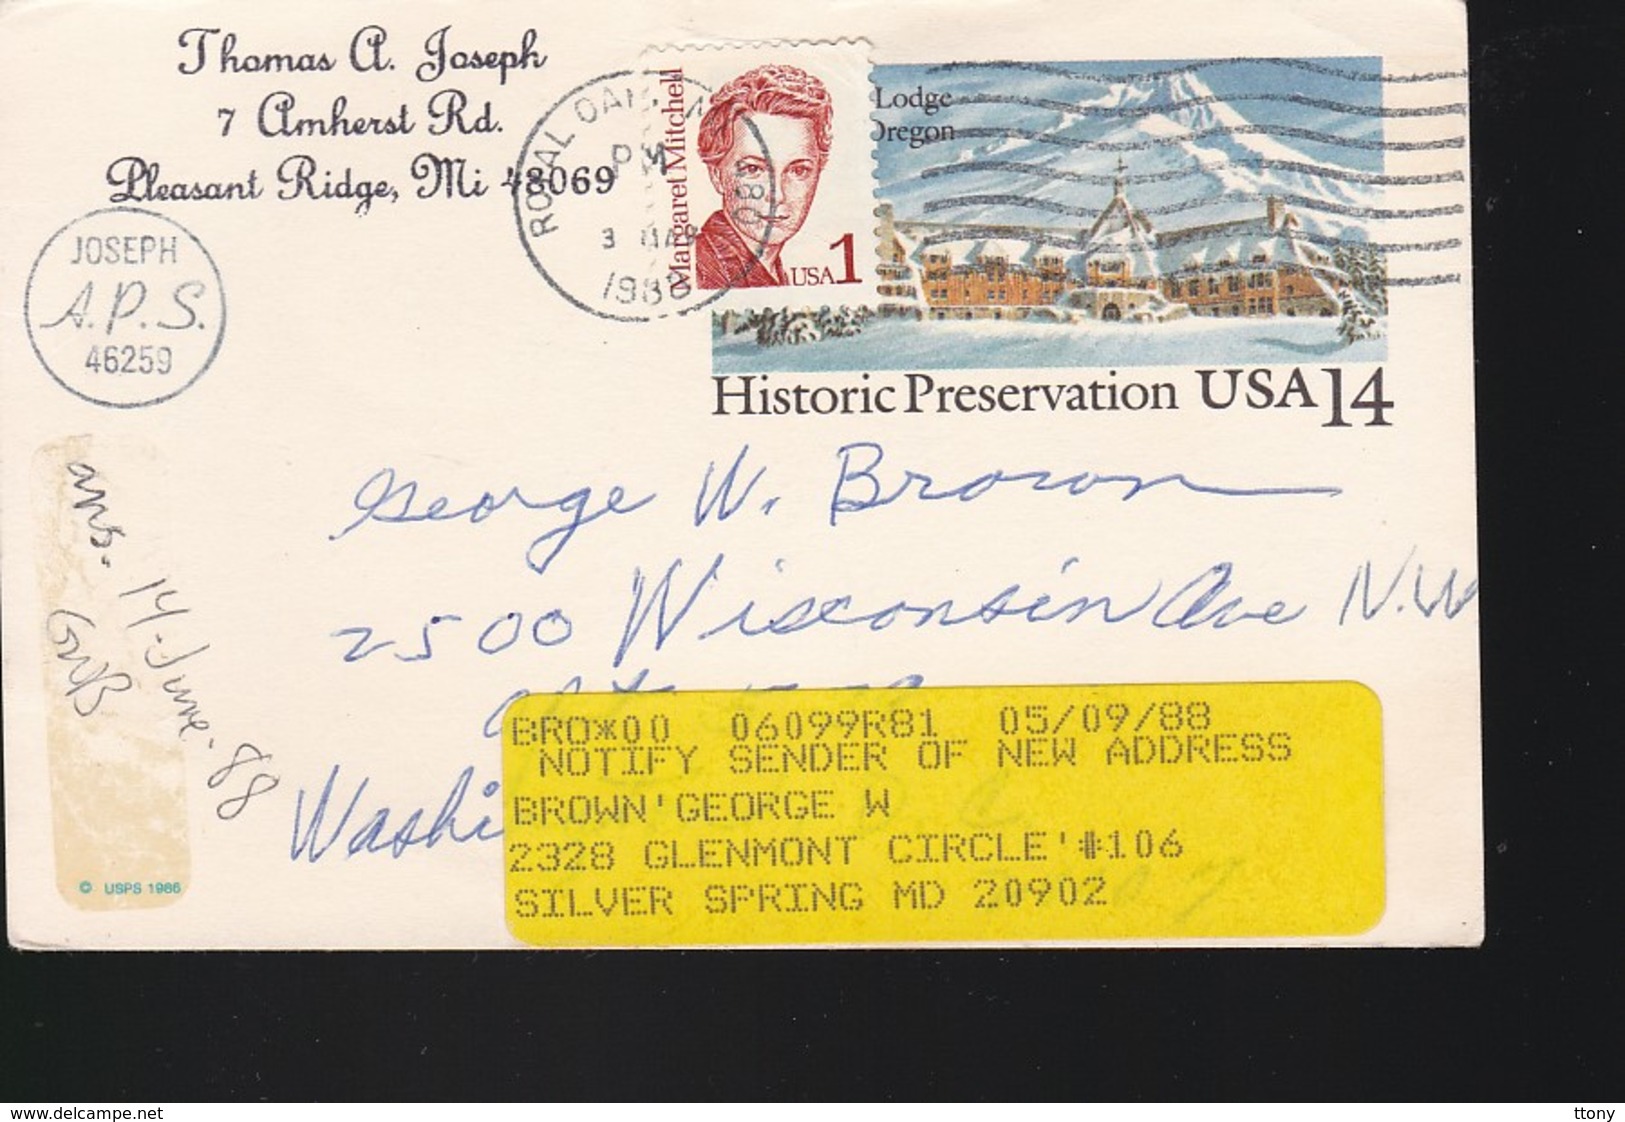 Thomas A. Joseph
7 Amherst Rd.
Pleasant Ridge, Mi 48069
JOSEPH
A.P.S.
46259
ROYAL OAK, MI 480
PM
3 MAR
1988
Margaret Mitchell
USA 1
Lodge
Oregon
Historic Preservation USA 14
George W. Brown
2500 Wisconsin Ave N.W
Washi
BRO*00 06099R81 05/09/88
NOTIFY SENDER OF NEW ADDRESS
BROWN'GEORGE W
2328 GLENMONT CIRCLE'#106
SILVER SPRING MD 20902
ans. 14. June. '88
GWB
© USPS 1986
www.delcampe.net
ttony